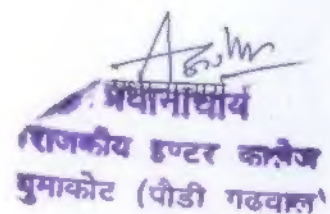 प्रधानाचार्य
राजकीय इण्टर कालेज
धुमाकोट (पौडी गढवाल)